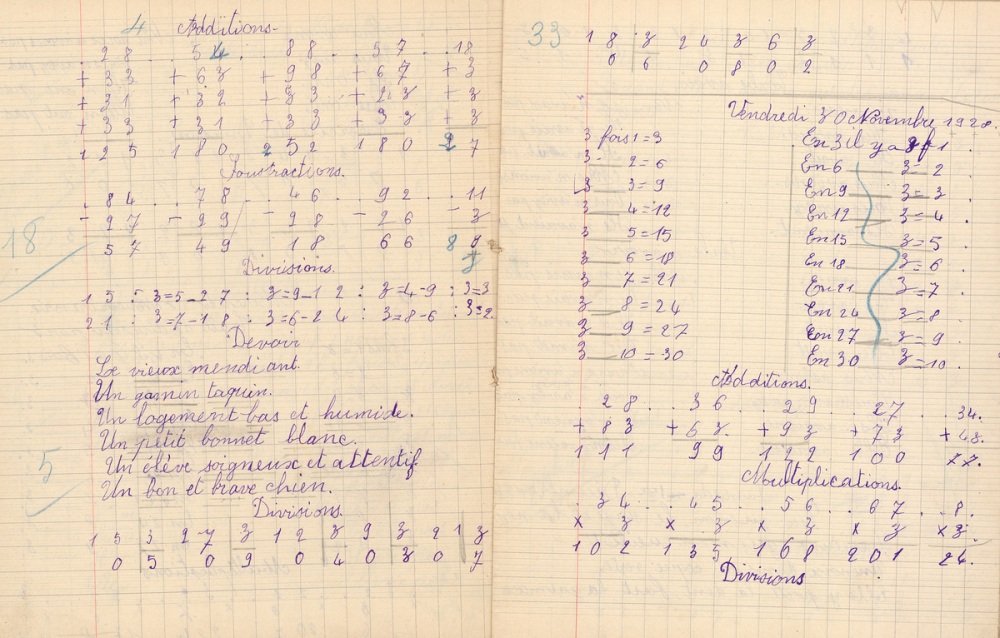 4 Additions.
28 . . 54 . . 88 . . 57 . . 18
+33 +63 +98 +67 +3
+31 +32 +33 +23 +3
+33 +31 +33 +33 +3
125 180 252 180 27
Soustractions.
84 . . 78 . . 46 . . 92 . . 11
-27 -29 -28 -26 -3
57 49 18 66 8 9
8
18
Divisions.
15 : 3=5-27 : 3=9-12 : 3=4-9 : 3=3
21 : 3=7-18 : 3=6-24 : 3=8-6 : 3=2.
Devoir
Le vieux mendiant.
Un gamin taquin.
Un logement bas et humide.
Un petit bonnet blanc.
5
Un élève soigneux et attentif
Un bon et brave chien.
Divisions
15 3 27 3 12 3 9 3 21 3
0 5 0 9 0 4 0 3 0 7
33
18 3 24 3 6 3
0 6 0 8 0 2
Vendredi 30 Novembre 1928.
3 fois 1=3 En 3 il y a 3 f 1
3 - 2=6 En 6 3=2
3 3=9 En 9 3=3
3 4=12 En 12 3=4
3 5=15 En 15 3=5
3 6=18 En 18 3=6
3 7=21 En 21 3=7
3 8=24 En 24 3=8
3 9=27 En 27 3=9
3 10=30 En 30 3=10.
Additions.
28 . . 36 . . 29 . . 27 . . 34.
+83 +63. +93 +73 +48.
111 99 122 100 77.
Multiplications.
34 . . 45 . . 56 . . 67 . . 8.
×3 ×3 ×3 ×3 ×3.
102 135 168 201 24.
Divisions